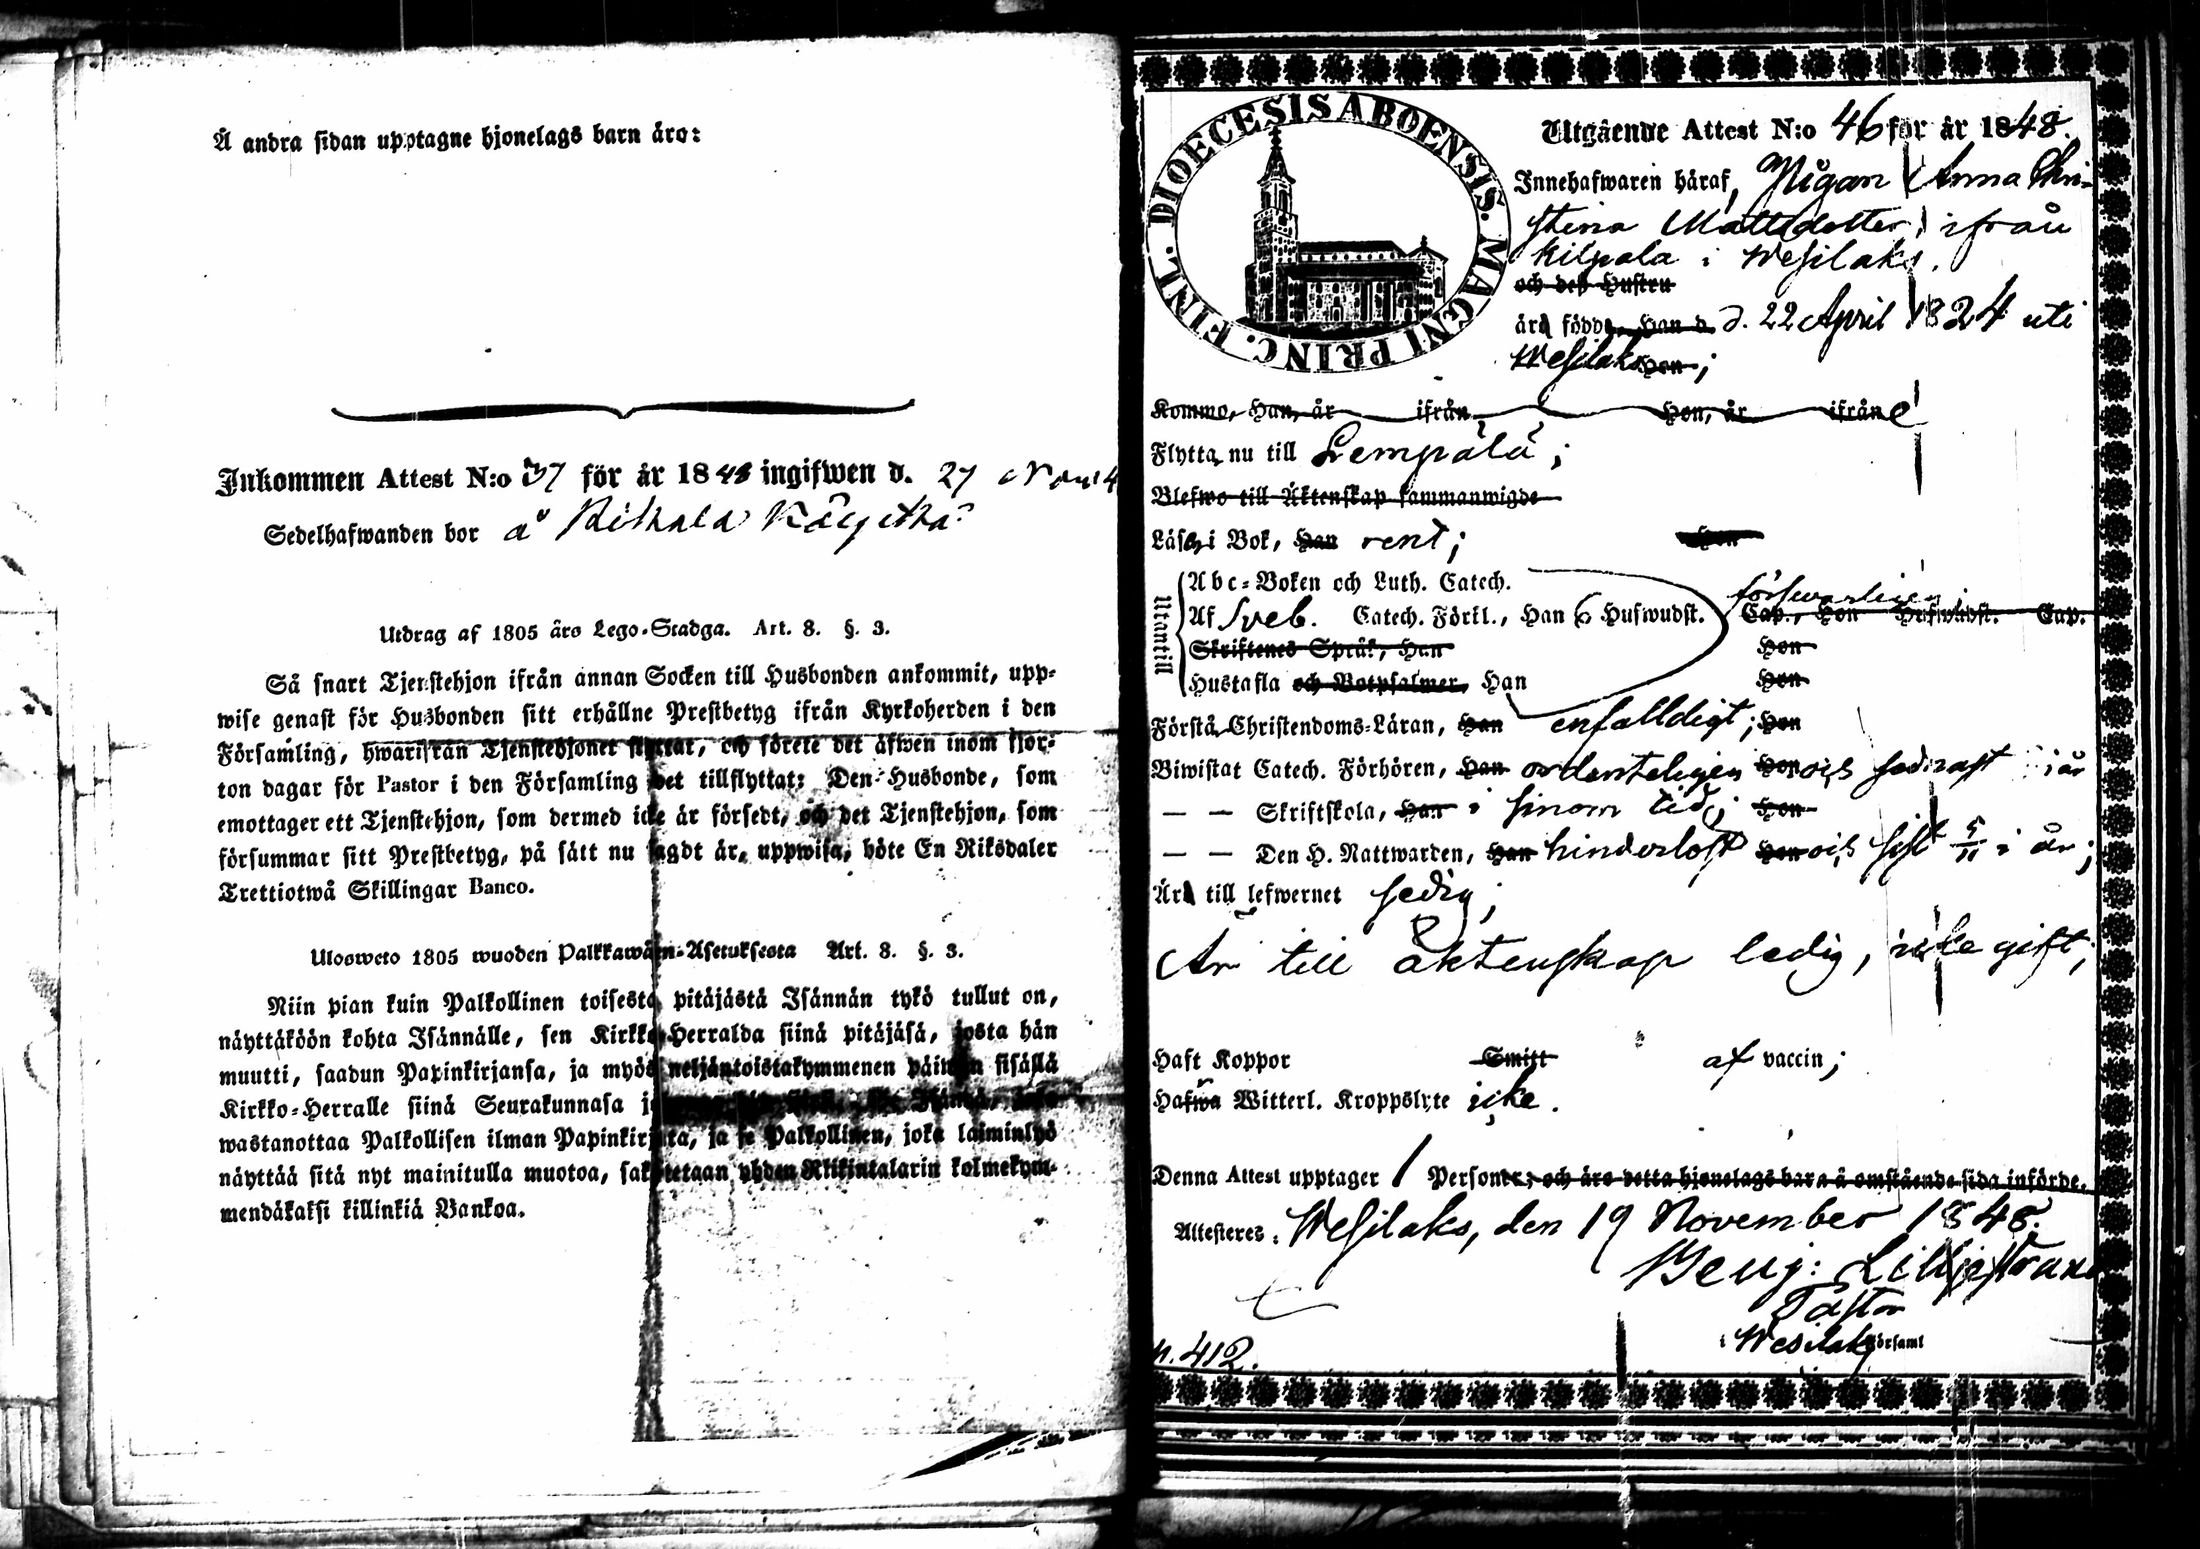 Å andra sidan upptagne hjonelags barn äro:
Inkommen Attest N:o 37 för år 1848 ingifwen d. 27 Nov
Sedelhafwanden bor å
Utdrag af 1805 års Lego-Stadga. Art. 8. §. 3.
Så snart Tjenstehjon ifrån annan Socken till Husbonden ankommit, upp-
wise genast för Husbonden sitt erhållne Prestbetyg ifrån Kyrkoherden i den
Församling, hwarifrån Tjenstehjonet flyttat, och förete det äfwen inom fjor-
ton dagar för Pastor i den Församling det tillflyttat: Den Husbonde, som
emottager ett Tjenstehjon, som dermed icke är försedt, och det Tjenstehjon, som
försummar sitt Prestbetyg, på sätt nu sagdt är, uppwisa, böte En Riksdaler
Trettiotwå Skillingar Banco.
Ulosweto 1805 wuoden Palkkawäen-Asetuksesta Art. 8. §. 3.
Niin pian kuin Palkollinen toisesta pitäjästä Isännän tykö tullut on,
näyttäköön kohta Isännälle, sen Kirkko-Herralda siinä pitäjäsä, josta hän
muutti, saadun Papinkirjansa, ja myös neljäntoistakymmenen päiwän sisällä
Kirkko-Herralle siinä Seurakunnasa
wastanottaa Palkollisen ilman Papinkirjata, ja se Palkollinen, joka laiminlyö
näyttää sitä nyt mainitulla muotoa, sakotetaan yhden Riikintalarin kolmekym-
mendäkaksi killinkiä Bankoa.
DIOECESIS ABOENSIS. MAGNI PRINC. FINL.
Utgående Attest N:o 46 för år 1848.
Innehafwaren häraf, Pigan Anna Chri-
stina Mattsdotter, ifrån
Kilpala i Wesilaks.
och des Hustru
äro födde, Han d. d. 22 April 1824 uti
Wesilaks Hon ;
Komme, Han, år ifrån Hon, år ifrån
Flytta nu till Lempälä;
Blefwo till Äktenskap sammanwigde
Läsa i Bok, Han rent; Hon
Utantill
Abc-Boken och Luth. Catech.
försvarligen;
Af Sveb. Catech. Förkl., Han 6 Hufwudst. Cap., Hon Hufwudst. Cap.
Skriftenes Språk, Han Hon
Hustafla och Botpsalmer, Han Hon
Förstå Christendoms-Läran, Han enfalldigt; Hon
Biwistat Catech. Förhören, Han ordenteligen Hon och sednast i år
— — Skriftskola, Han i sinom tid; Hon
— — Den H. Nattwarden, Han hinderlöst Hon och sist 5/11 i år;
Äro till lefwernet sedig;
Är till äktenskap ledig, icke gift;
Haft Koppor Smitt af vaccin;
Hafwa Witterl. Kroppslyte icke.
Denna Attest upptager 1 Personer, och äro detta hjonelags barn å omstående sida införde.
Attesteres: Wesilaks, den 19 November 1848.
Benj: Lilljestrand
Pastor
i Wesilaks Församl
p. 412.